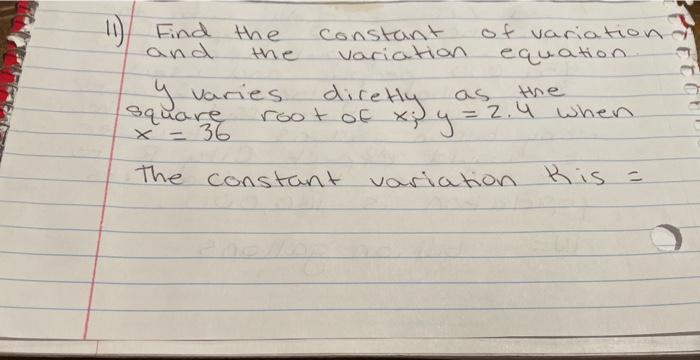 11) Find the constant of variation
and the variation equation
y varies diretly as the
square root of x; y = 2.4 when
x = 36
The constant variation K is =